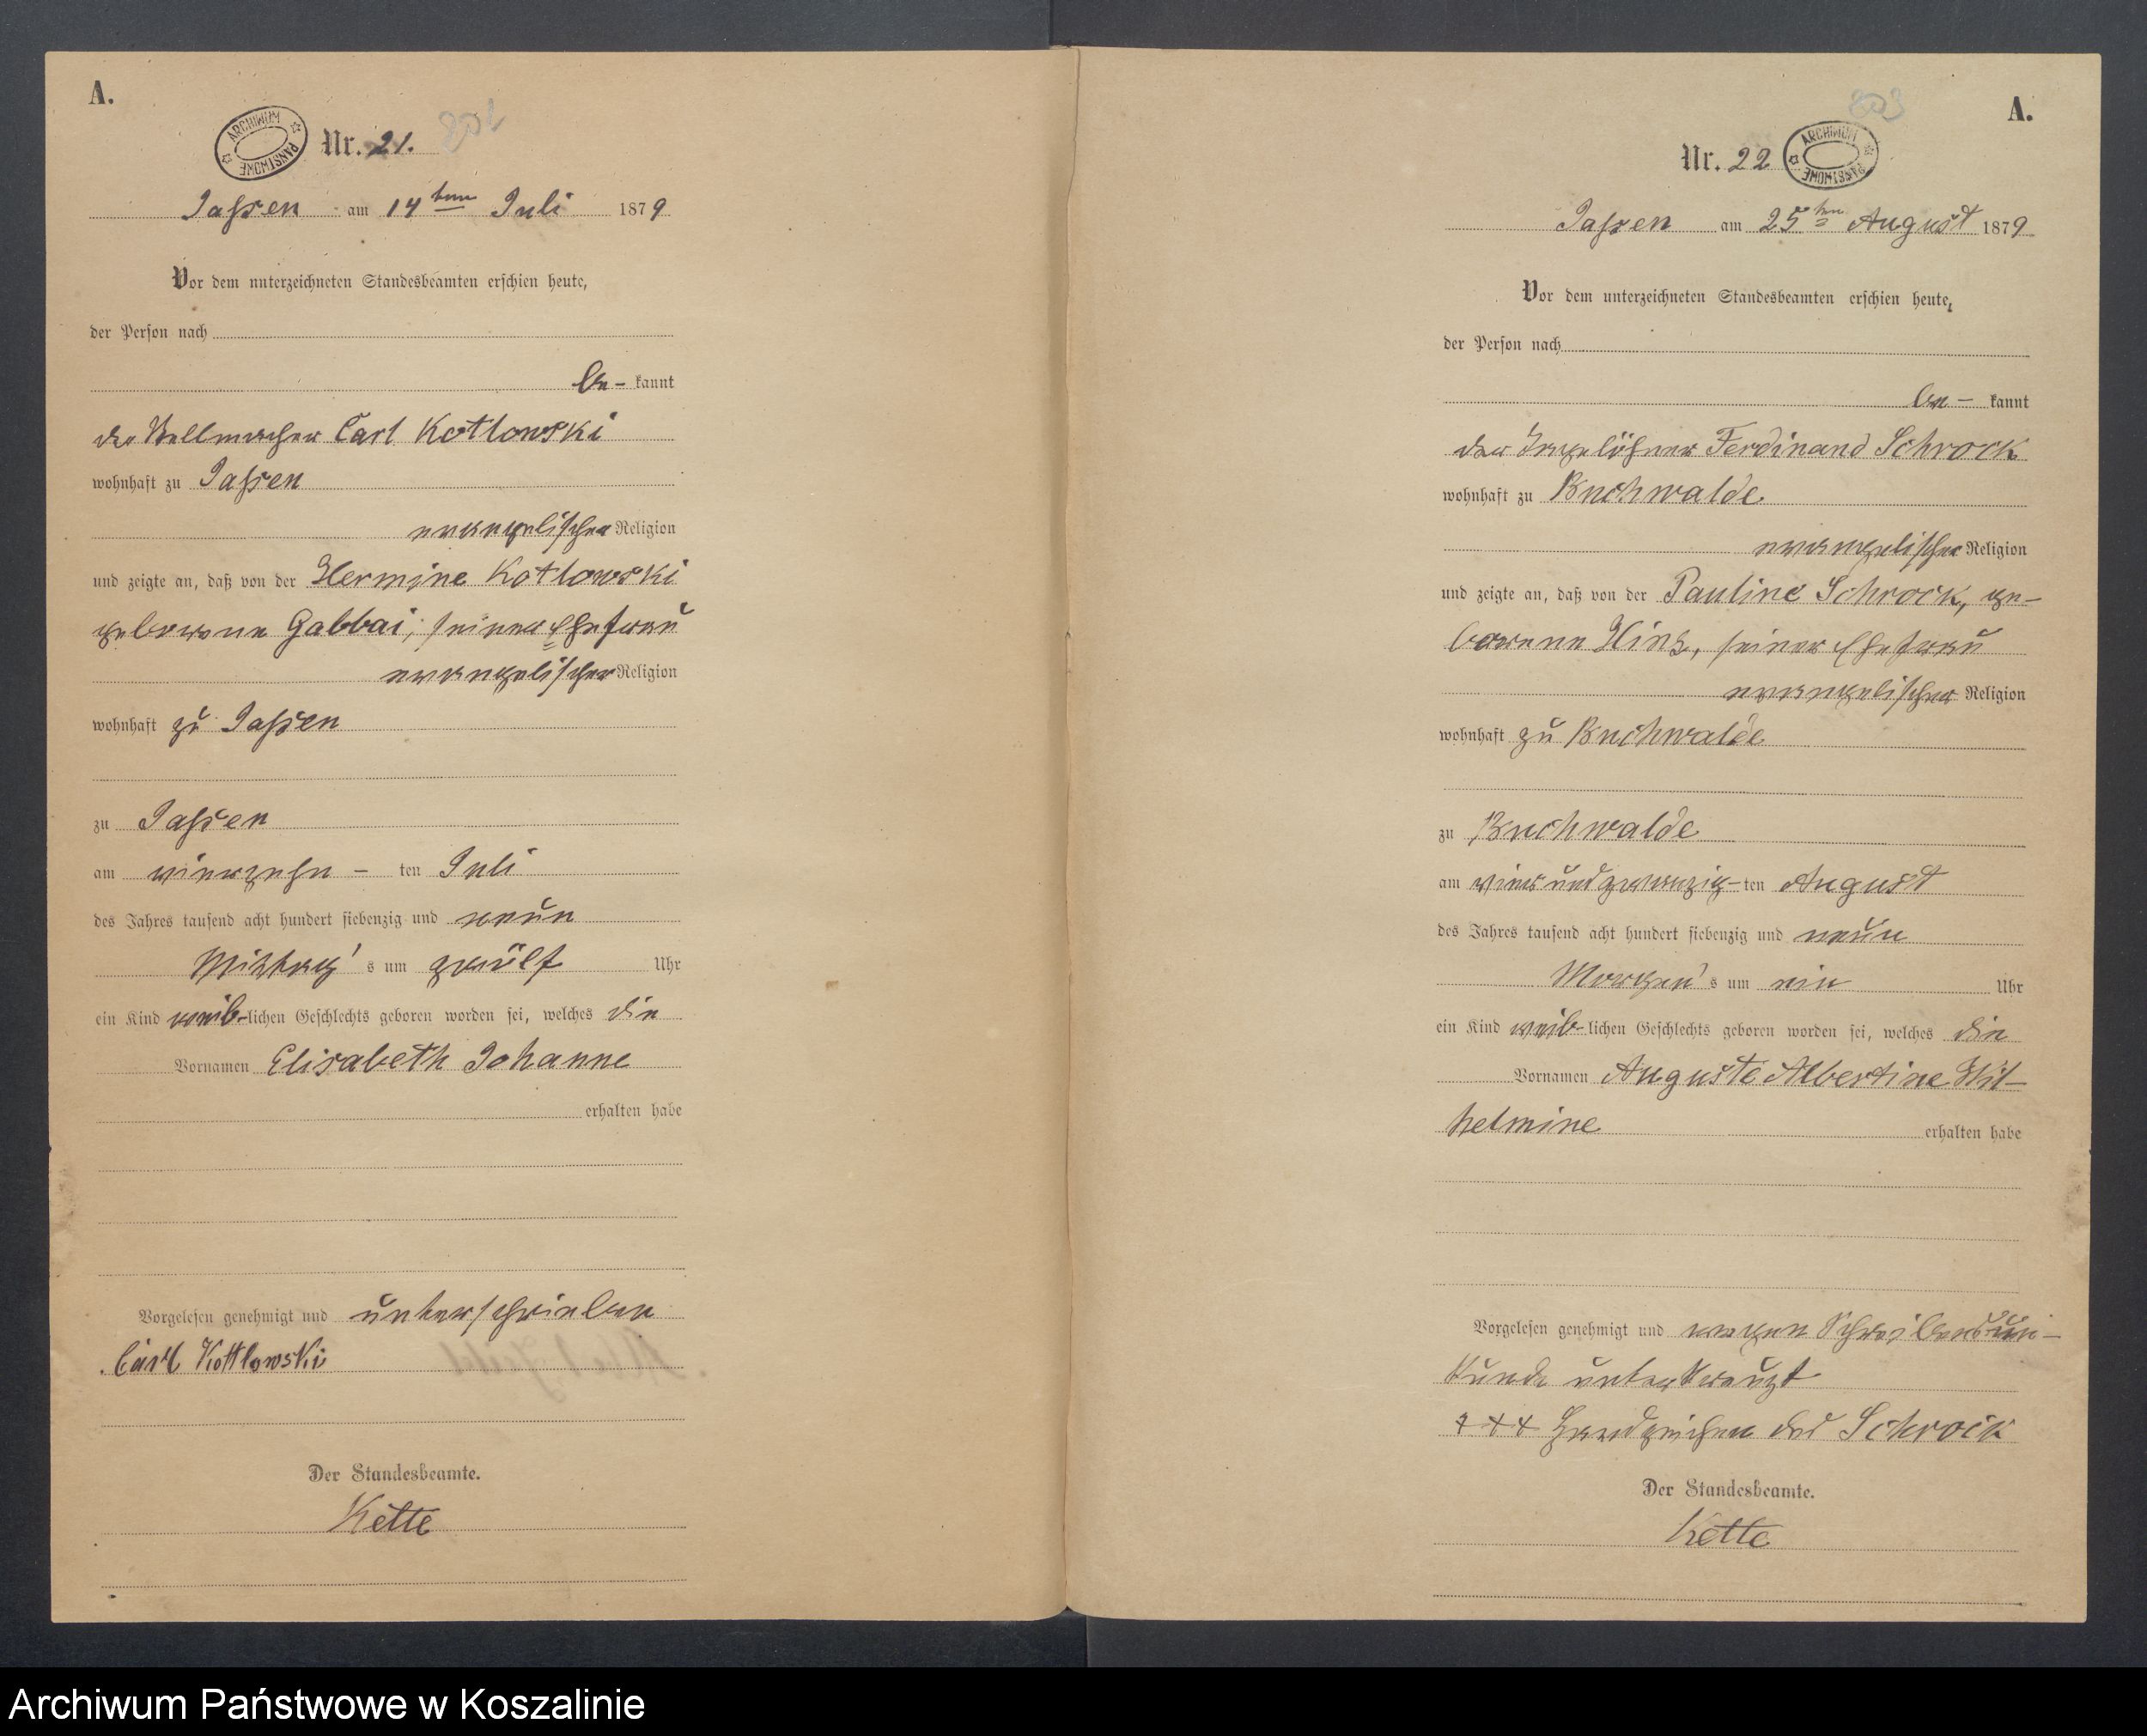 A.
ARCHIWUM PAŃSTWOWE
Nr. 21.
Jassen am 14ten Juli 1879
Vor dem unterzeichneten Standesbeamten erschien heute,
der Person nach
be- kannt
der Stellmacher Carl Kotlowski
wohnhaft zu Jassen
evangelischer Religion
und zeigte an, daß von der Hermine Kotlowski
geborene Gabbai, seiner Ehefrau
evangelischer Religion
wohnhaft zu Jassen
zu Jassen
am vierzehn - ten Juli
des Jahres tausend acht hundert siebenzig und neun
Mittag's um zwölf Uhr
ein Kind weib-lichen Geschlechts geboren worden sei, welches die
Vornamen Elisabeth Johanne
erhalten habe
Vorgelesen genehmigt und unterschrieben
Carl Kottlowski
Der Standesbeamte.
Kette
A.
803
Nr. 22
ARCHIWUM PAŃSTWOWE
Jassen am 25ten August 1879
Vor dem unterzeichneten Standesbeamten erschien heute,
der Person nach
be- kannt
der Tagelöhner Ferdinand Schrock
wohnhaft zu Buchwalde
evangelischer Religion
und zeigte an, daß von der Pauline Schrock, ge-
borene Hinz, seiner Ehefrau
evangelischer Religion
wohnhaft zu Buchwalde
zu Buchwalde
am vierundzwanzig-ten August
des Jahres tausend acht hundert siebenzig und neun
Morgen's um ein Uhr
ein Kind weib-lichen Geschlechts geboren worden sei, welches die
Vornamen Auguste Albertine Wil-
helmine erhalten habe
Vorgelesen genehmigt und wegen Schreibensun-
kunde unterkreuzt
+++ Handzeichen des Schrock
Der Standesbeamte.
Kette
Archiwum Państwowe w Koszalinie